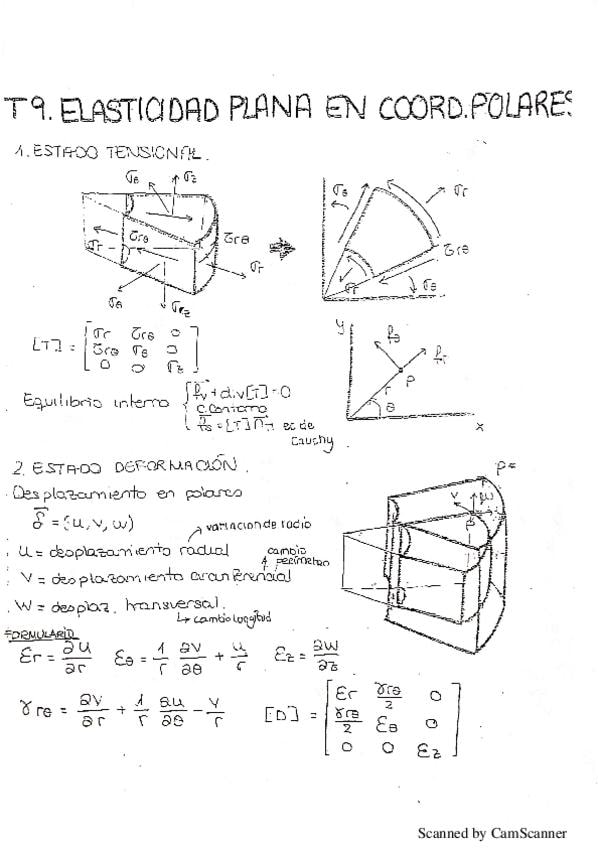 T9. ELASTICIDAD PLANA EN COORD. POLARES
1. ESTADO TENSIONAL.
σθ σz
σr τrθ τrθ
σr
σθ σz
σθ σr
τrθ
σr σθ
[T] = [σr τrθ 0
τrθ σθ 0
0 0 σz]
Equilibrio interno { f̄v + div[T] = 0
c. contorno
f̄s = [T] n̄ → ec de
Cauchy
y
f̄θ f̄r
P
r
θ
x
2. ESTADO DEFORMACIÓN.
Desplazamiento en polares
δ̄ = (u, v, w)
→ variacion de radio
. u = desplazamiento radial
cambio
perimetro
. v = desplazamiento circunferencial
. w = desplaz. transversal.
→ cambio longitud
P=
v w
P
FORMULARIO
εr = ∂u/∂r εθ = 1/r ∂v/∂θ + u/r εz = ∂w/∂z
γrθ = ∂v/∂r + 1/r ∂u/∂θ - v/r [D] = [εr γrθ/2 0
γrθ/2 εθ 0
0 0 εz]
Scanned by CamScanner